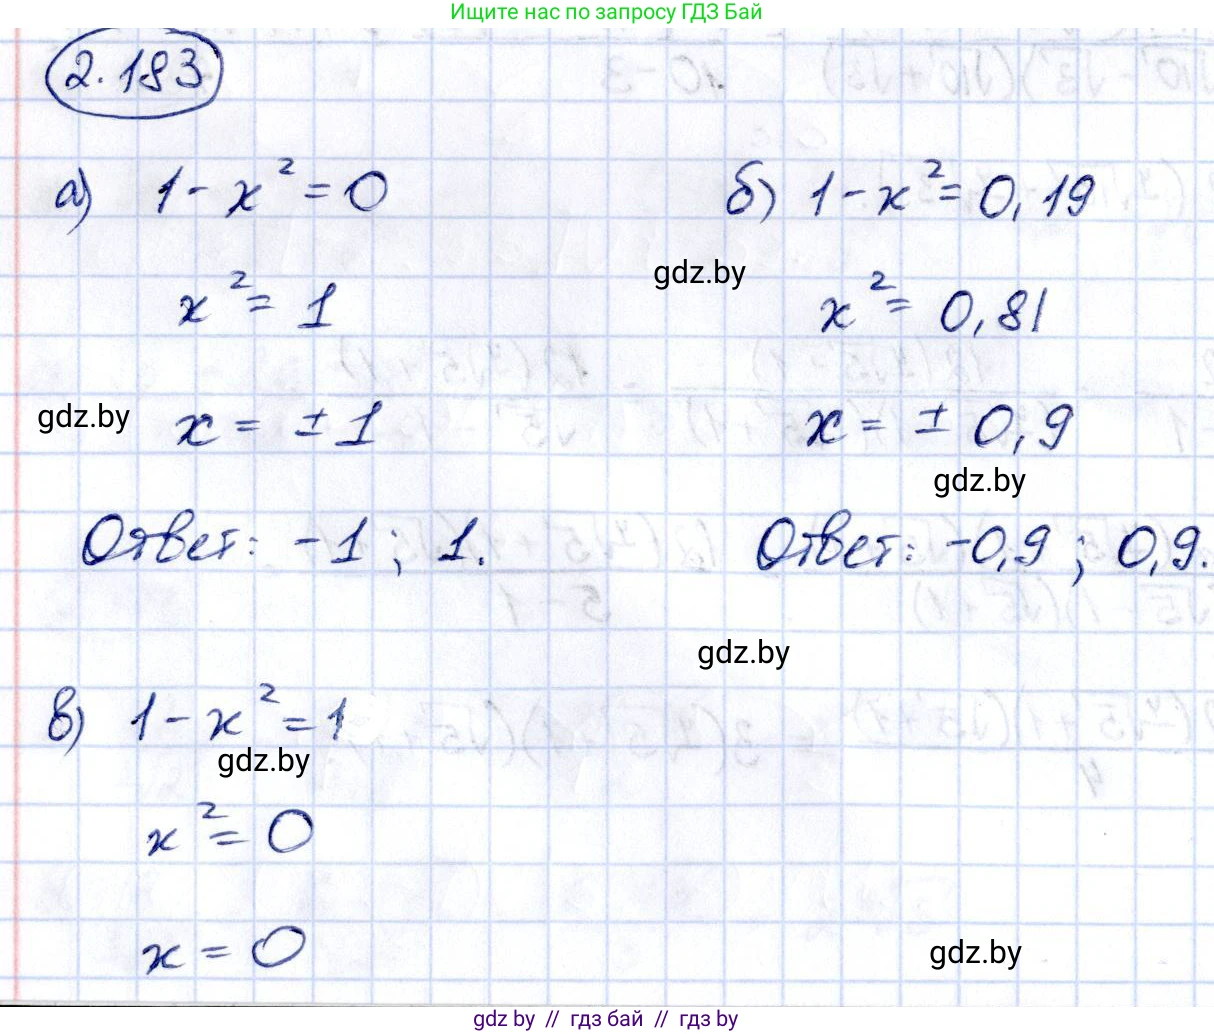 Ищите нас по запросу ГДЗ Бай
2.183
а) 1 - x² = 0
x² = 1
gdz.by
x = ± 1
Ответ: -1 ; 1.
б) 1 - x² = 0,19
gdz.by
x² = 0,81
x = ± 0,9
gdz.by
Ответ: -0,9 ; 0,9.
gdz.by
в) 1 - x² = 1
gdz.by
x² = 0
x = 0
gdz.by
gdz by // гдз бай // гдз by